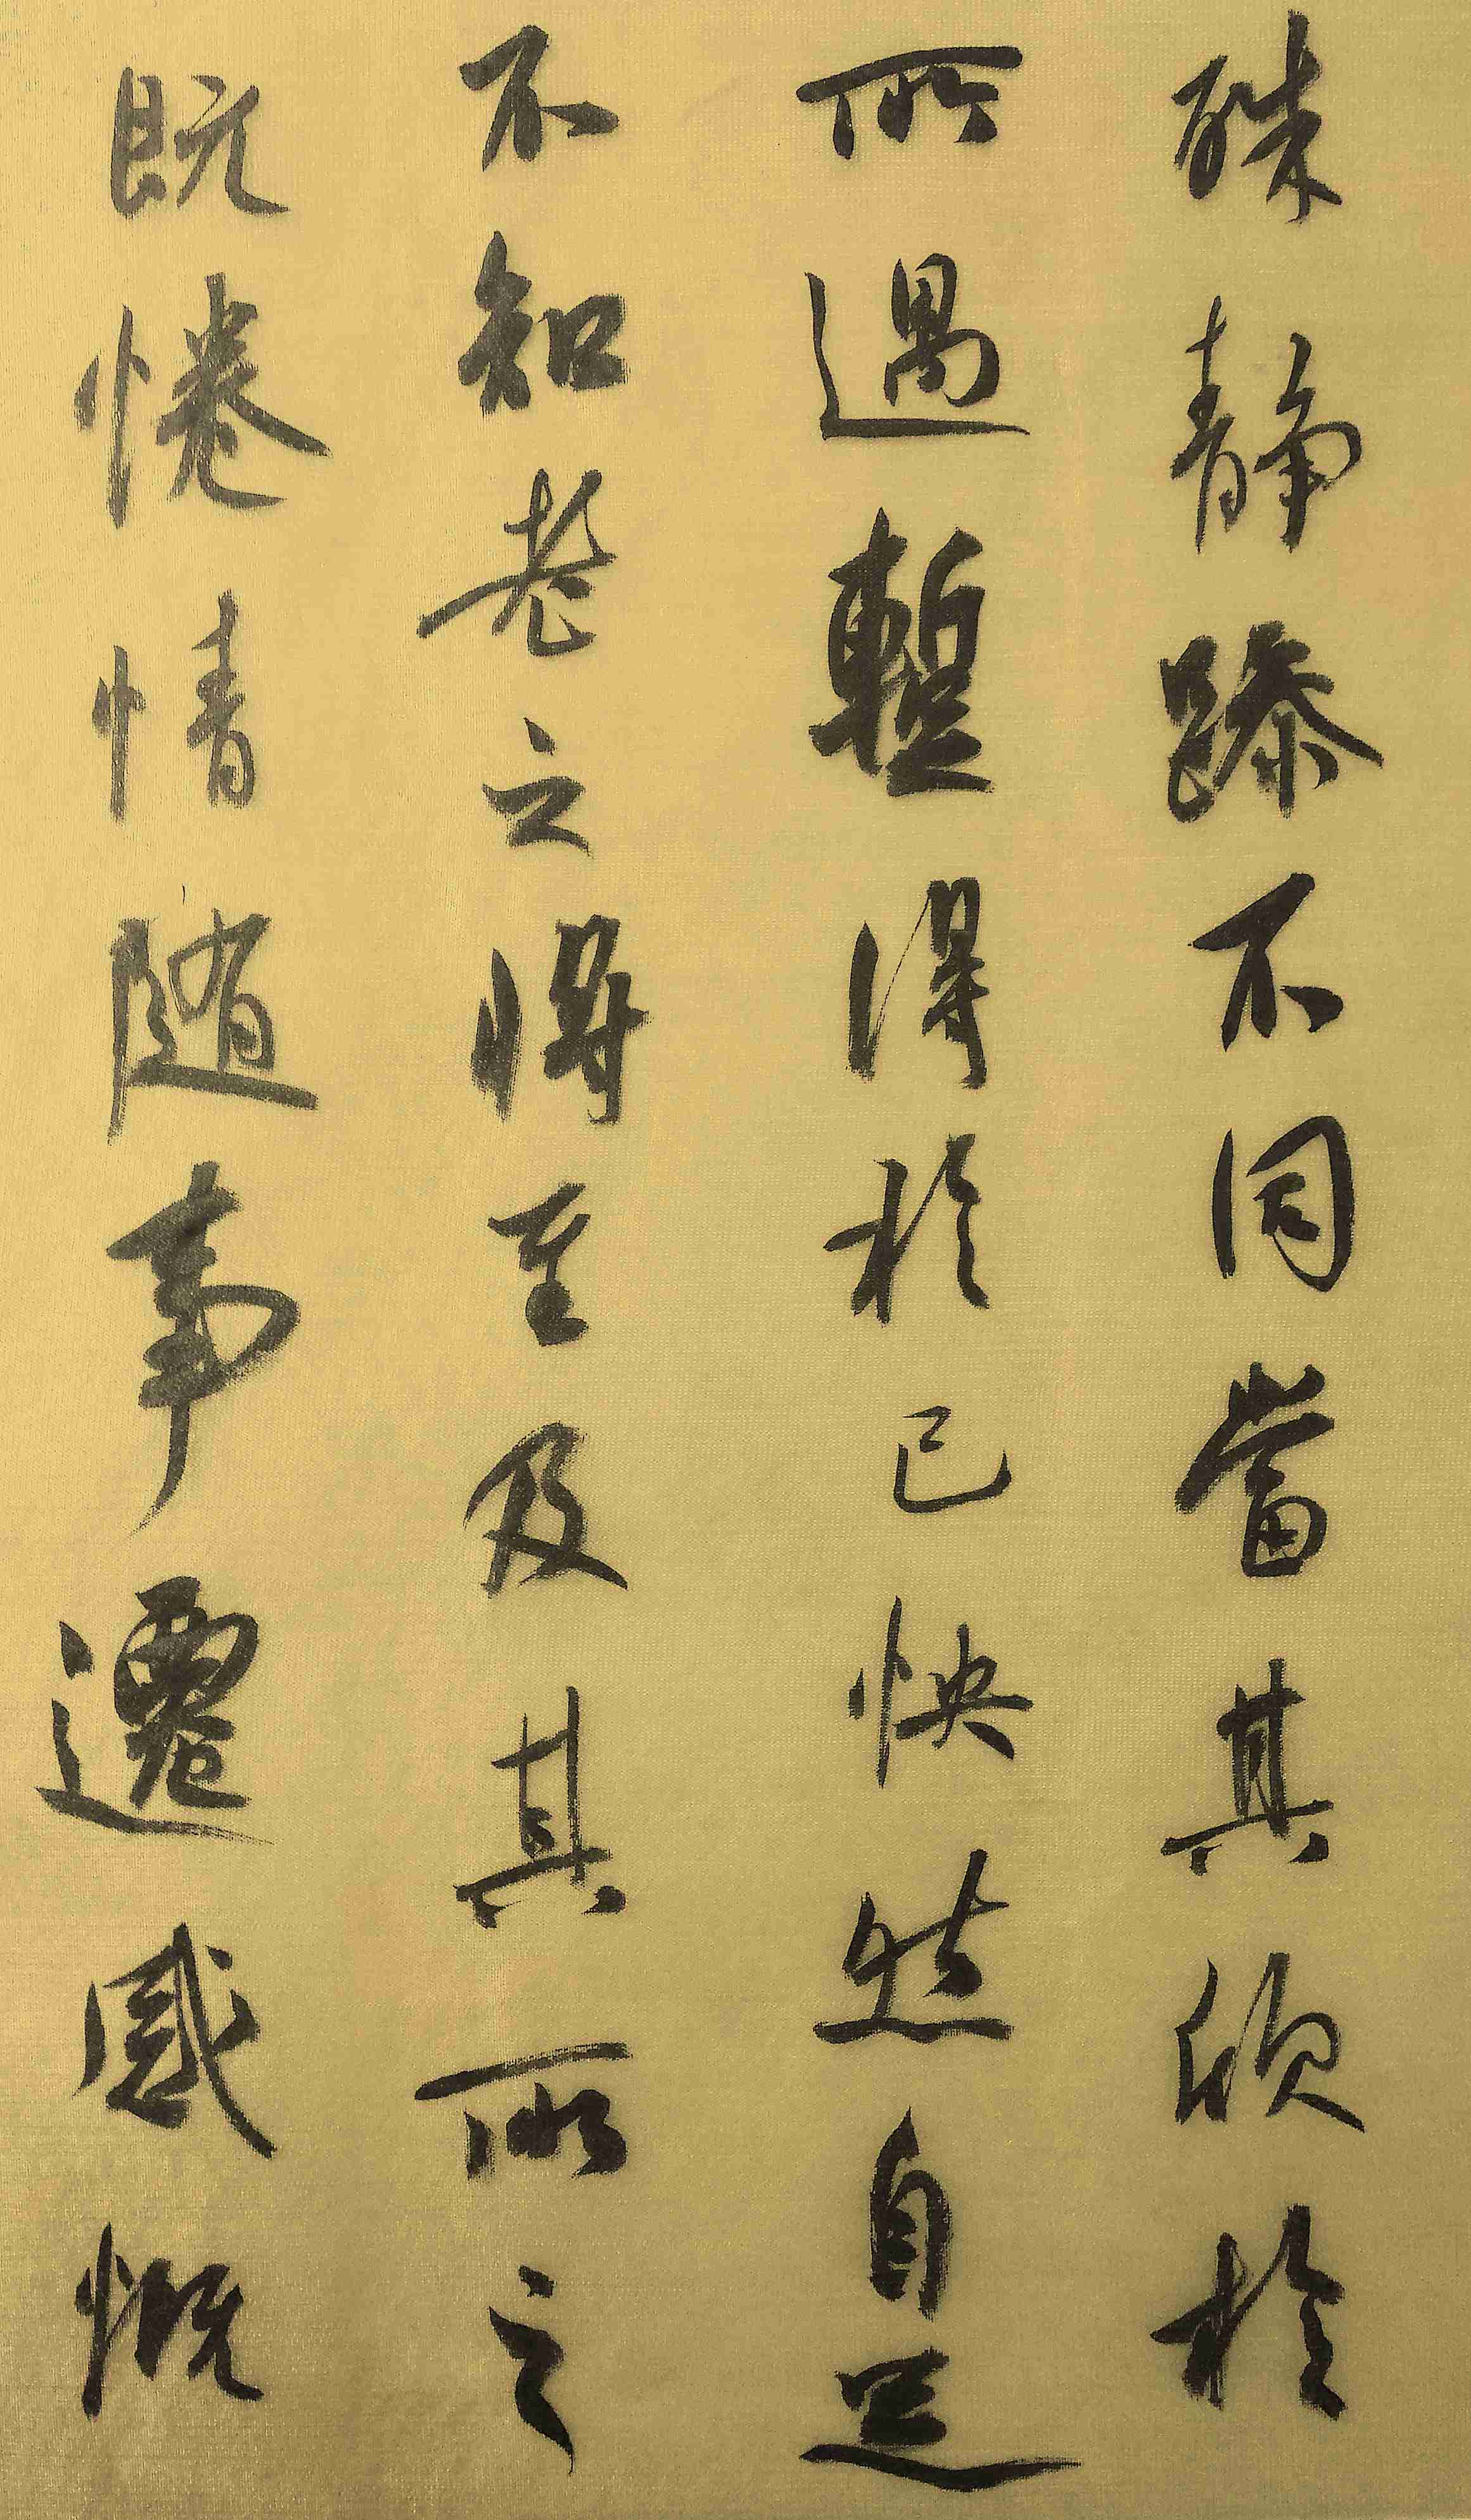 殊静躁不同當其欣於
所遇蹔得於己怏然自足
不知老之將至及其所之
既惓情随事遷感慨